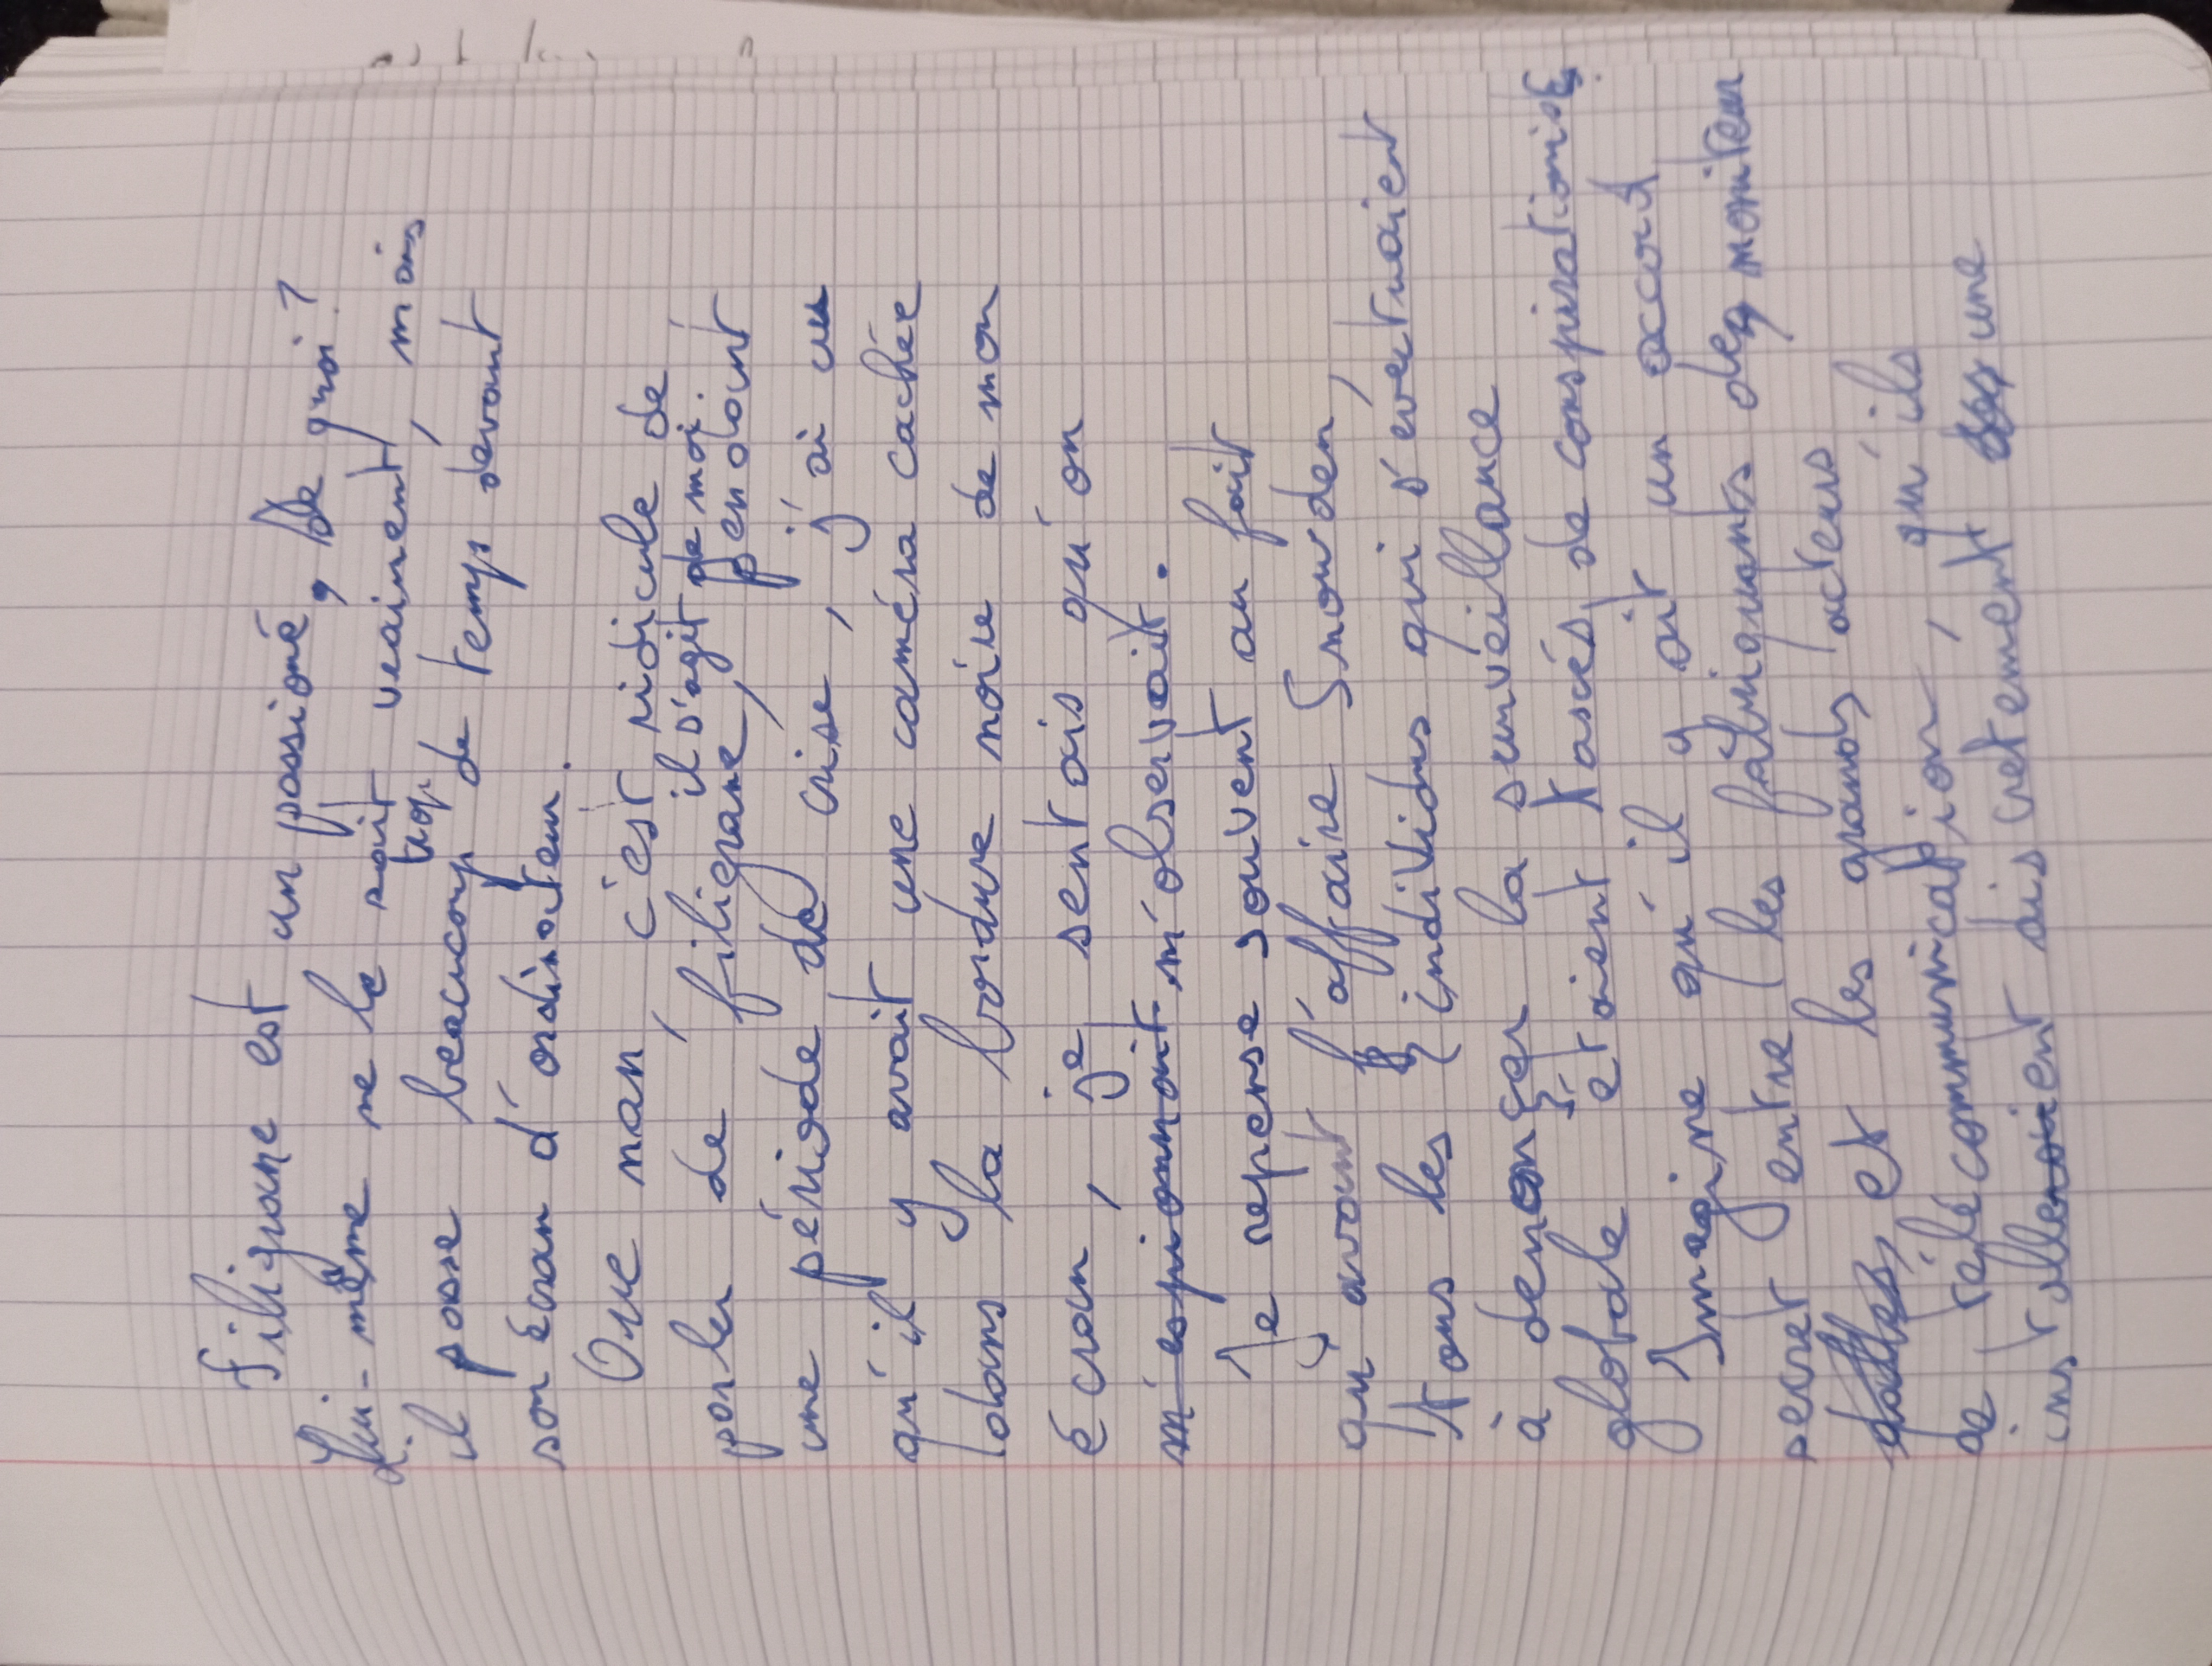 Filigrane est un passioné, De quoi?
Lui-même ne le sait vraiment, mais
trop
il passe beaucoup de temps devant
son écran d'ordinateur.
Oue nan, c'est ridicule de
il s'agit de moi.
parler de filigrane, pendant
une période de crise, j'ai vu
qu'il y avait une caméra cachée
dans la bordure noire de mon
écran, je sentais qu'on
m'espionnait m'observait.
Je repense souvent au fait
qu'avant l'affaire Snowden,
tous les individus qui s'évertuaient
à denonçer la surveillance
globale étaient taxés de conspirationistes
Imagine qu'il y ait un accord
secret entre les fabriquants de moniteur
dalles et les grands acteurs
de télécommunication, qu'ils
installeraient discretement une